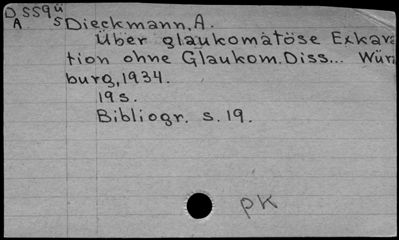 D559ü
A
s Dieckmann, A.
Über glaukomatöse Exkava
tion ohne Glaukom. Diss... Würz
burg, 1934.
19s.
Bibliogr. s. 19.
PK